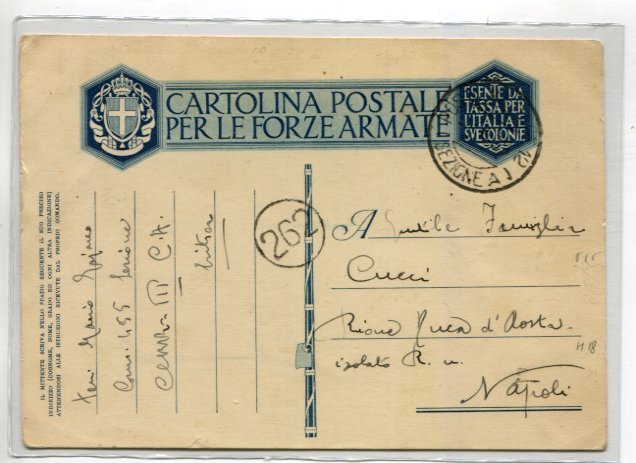 CARTOLINA POSTALE
PER LE FORZE ARMATE
ESENTE DA
TASSA PER
L'ITALIA E
SVE COLONIE
SEZIONE A
262
IL MITTENTE SCRIVA NELLO SPAZIO SEGUENTE IL SUO PRECISO
INDIRIZZO (COGNOME, NOME, GRADO ED OGNI ALTRA INDICAZIONE)
ATTENENDOSI ALLE ISTRUZIONI RICEVUTE DAL PROPRIO COMANDO.
Mario
455
III C.A.
A Gentile Famiglia
Cucci
Rione Duca d'Aosta
isolato R.
Napoli
M 18